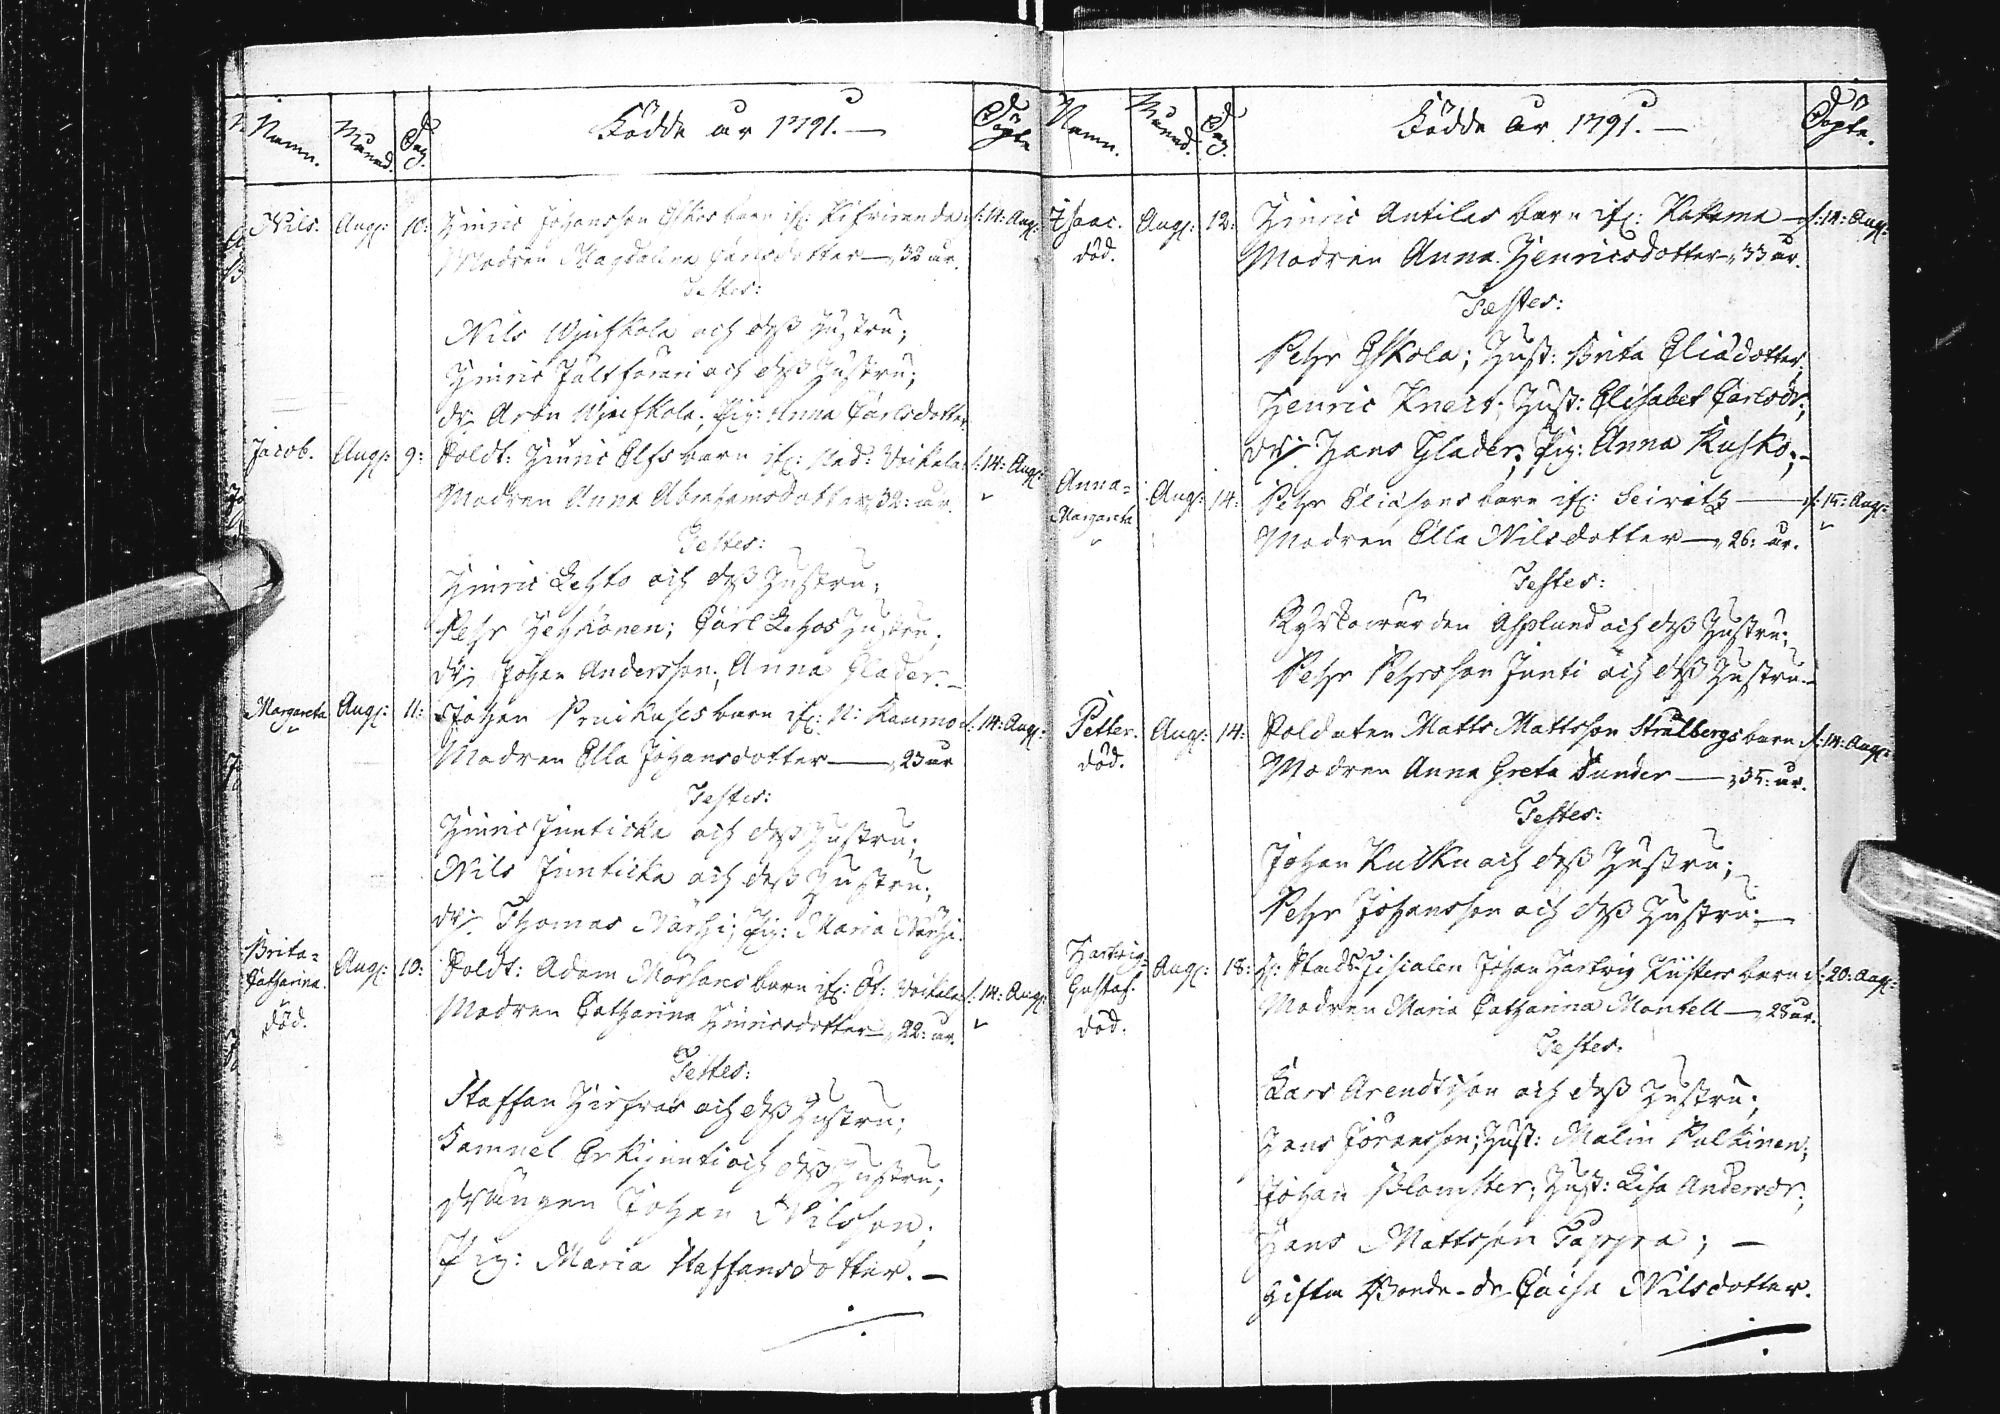 Namn. Månad. Dag. Födde år 1791. — Döpte
Nils. Aug: 10: Hinric Johansson barn if: d: 14: Aug:
Modren Magdalena Carlsdotter — 32 år.
Testes:
Nils och deß Hustru;
Hinric och deß Hustru;
dr: Aron Pig: Anna Carlsdotter
Jacob. Aug: 9: Soldt: Hinric Elfs barn if: Ned: Voikala d: 14: Aug:
Modren Anna Abrahamsdotter 32: år.
Testes:
Hinric Lehto och deß Hustru;
Pehr Heikönen; Carl Lehtos Hustru;
dr: Johan Andersson; Anna Glader. —
Margareta Aug: 11: Johan barn if: N: Raumo d: 14: Aug:
Modren Ella Johansdotter — 23 år
Testes:
Hinric Junticka och deß Hustru;
Nils Junticka och deß Hustru;
dr: Thomas Närhi; Pig: Maria Närhi.
Brita= Catharina. död. Aug: 10: Soldt: Adam Mörtars barn if: Öf: Voikala d: 14: Aug:
Modren Catharina Hinricsdotter — 22: år.
Testes:
Staffan och deß Hustru;
Samuel Erkijunti och deß Hustru;
Drängen Johan Nilsson;
Pig: Maria Staffansdotter. —
Namn. Månad. Dag. Födde år 1791. — Döpte.
Isaac. död. Aug: 12: Hinric Antilas barn if: Kakama — d: 14: Aug:
Modren Anna Henricsdotter — 33 år.
Testes:
Pehr Eskola; Hust: Brita Eliædotter;
Henric Knekt; Hust: Elisabet Carlsdr;
dr: Hans Glader; Pig: Anna Kusko; —
Anna= Margareta Aug: 14: Pehr Eliæsons barn if: Seivits — d: 15: Aug:
Modren Ella Nilsdotter — 26: år.
Testes:
Kyrkowärden Asplund och deß Hustru;
Pehr Pehrsson Junti och deß Hustru. —
Petter. död. Aug: 14: Soldaten Matts Mattsson Strålbergs barn d: 14: Aug:
Modren Anna Greta Sunder — 35: år.
Testes:
Johan Kusku och deß Hustru;
Pehr Johansson och deß Hustru; —
Hartvig= Gustaf. död. Aug: 18: H: Stads Fiscalen Johan Hartvig Küsters barn d: 20: Aug:
Modren Maria Catharina Montell — 28 år.
Testes.
Lars Arendtson och deß Hustru;
Hans Göransson; Hust: Malin Pulkinen;
Johan Blomster; Hust: Lisa Andersdr;
Hans Mattsson Pappra; —
Gifta Bonde-dr Cajsa Nilsdotter.